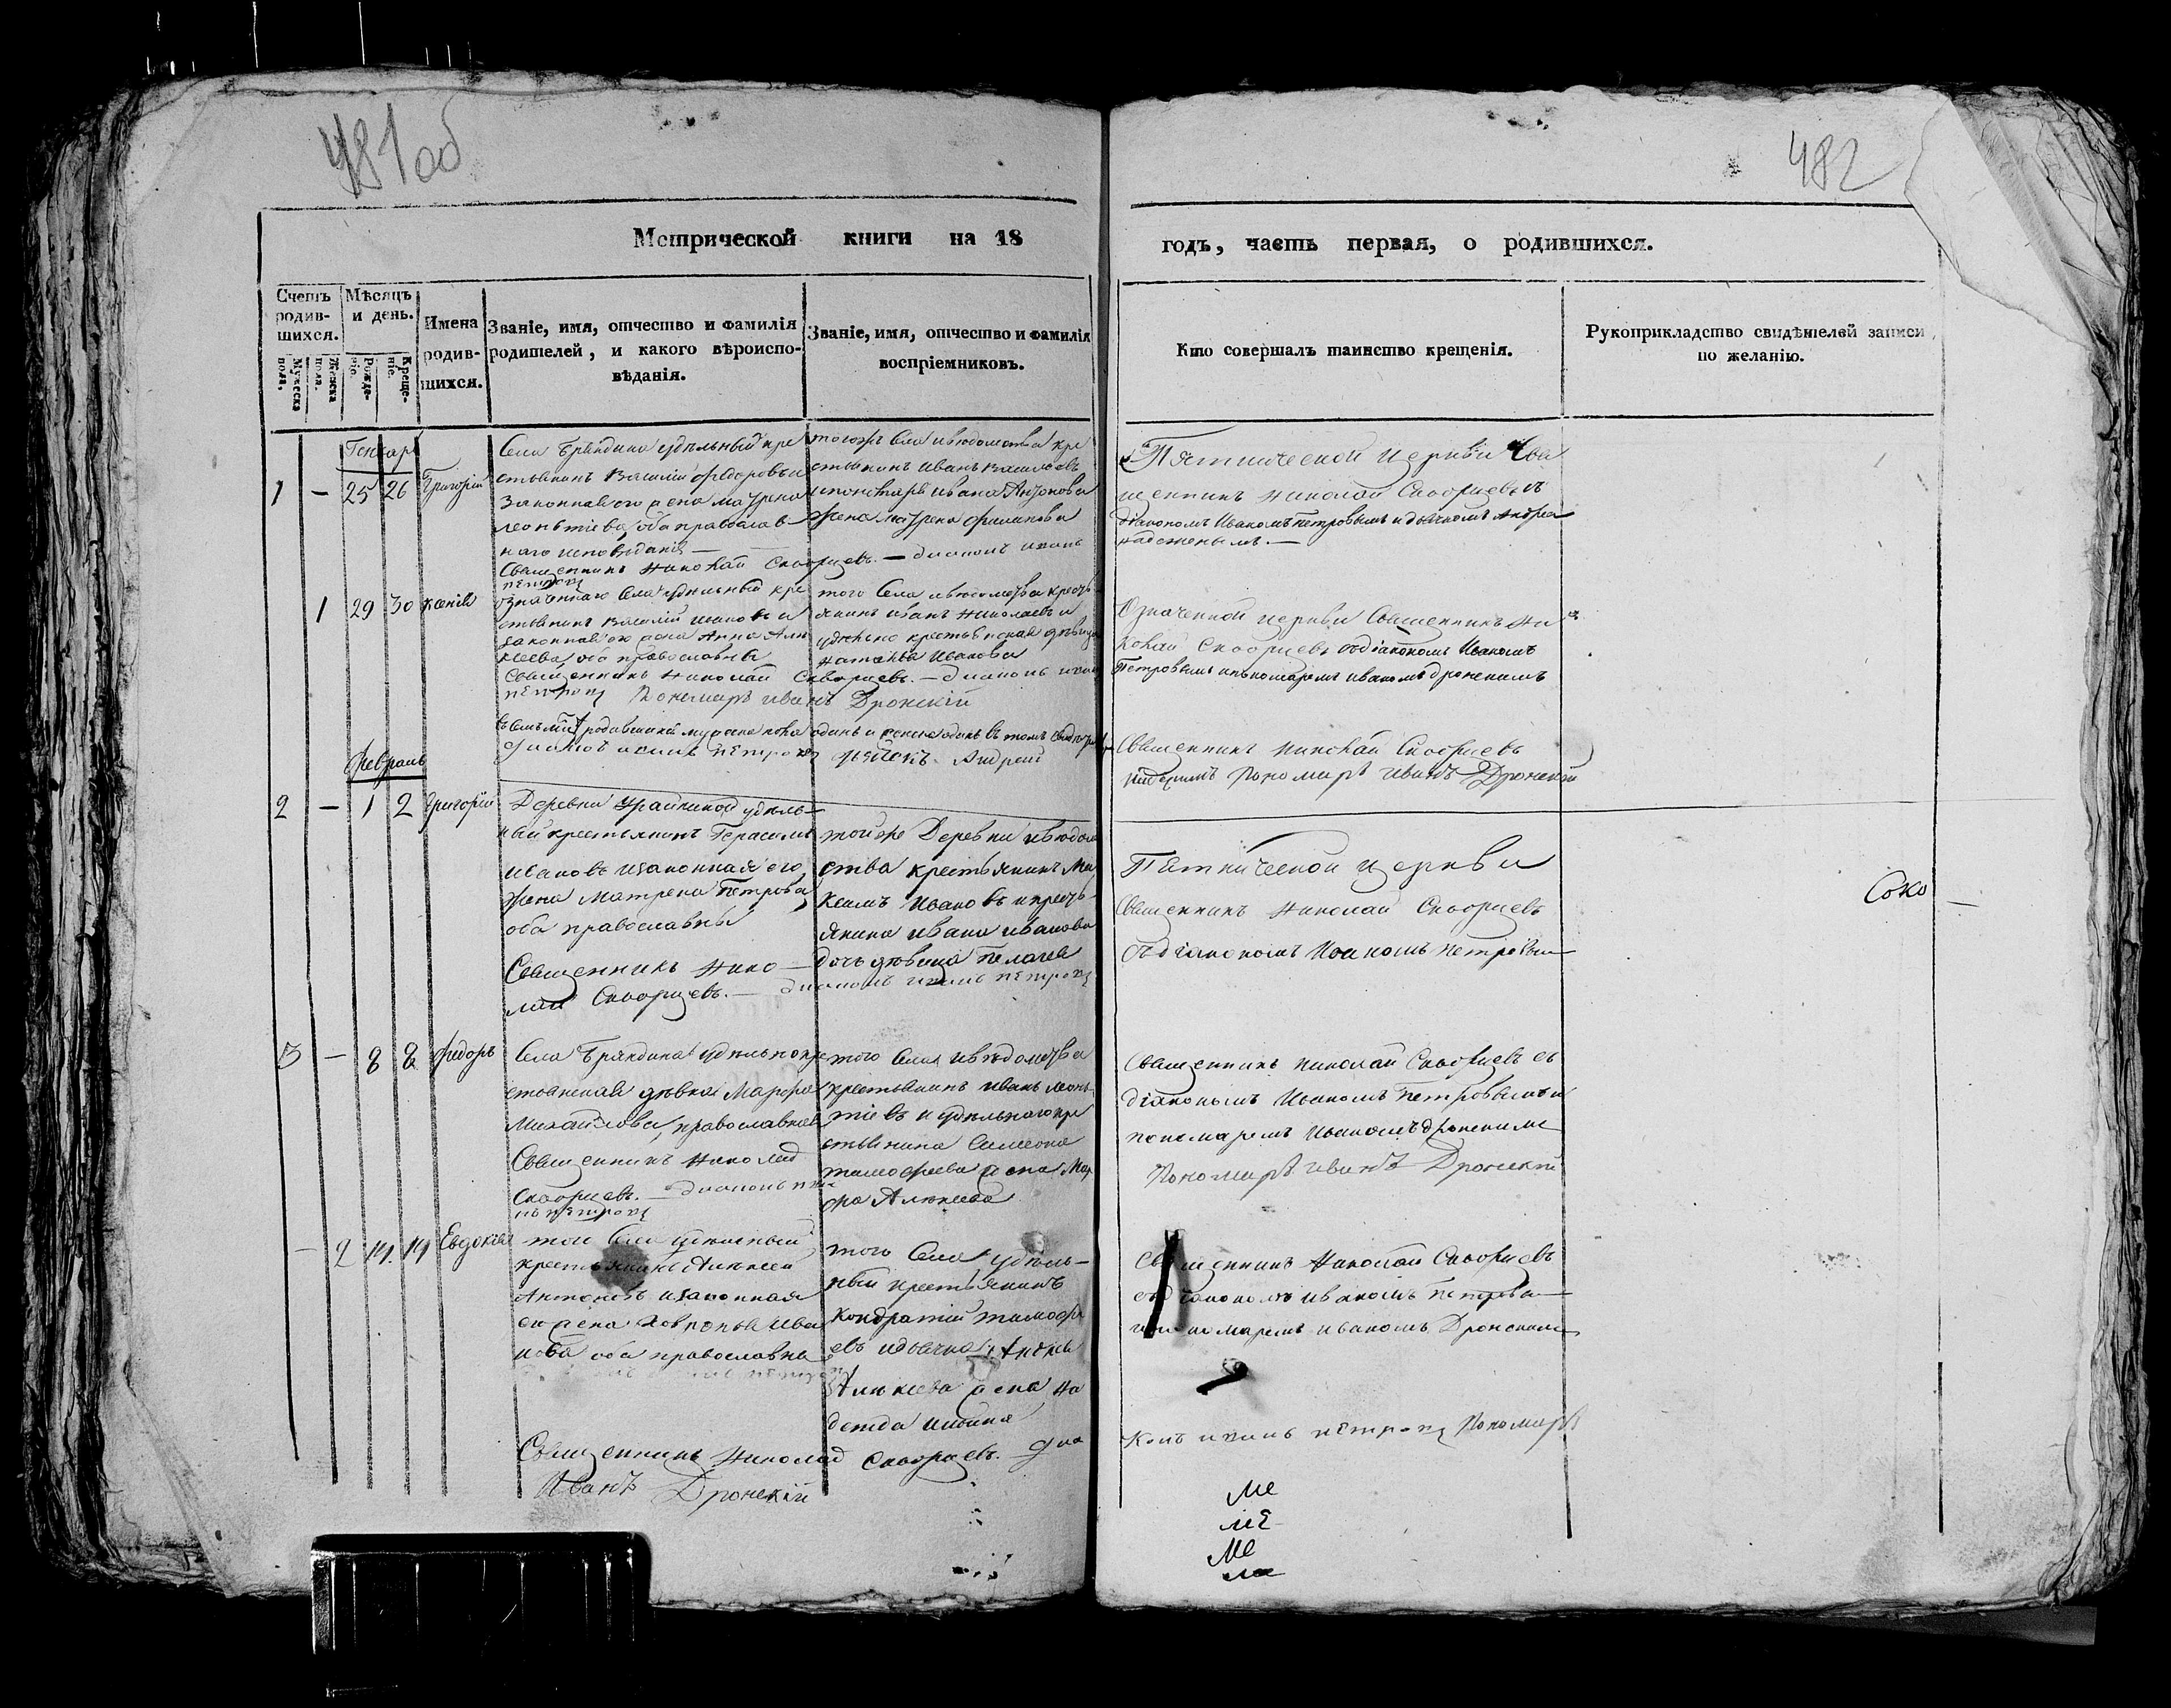 481об
482
Метрической книги на 18
годъ, часть первая, о родившихся.
Счетъ родив-шихся.
Мужеска пола.
Женска пола.
Мѣсяцъ и день.
Рожде-ніе.
Креще-ніе.
Имена родив-шихся.
Званіе, имя, отчество и фамилія родителей, и какого вѣроиспо-вѣданія.
Званіе, имя, отчество и фамилія воспріемниковъ.
Кто совершалъ таинство крещенія.
Рукоприкладство свидѣтелей записи по желанію.
Генварь
1 – 25 26 Григорій
Села Бряндина удѣльный кре
стьянинъ Василій Федоровъ и
законная его жена Матрена
Леонтіева, оба православ-
наго исповѣданія —
Священникъ Николай Скворцевъ. — Диаконъ Иванъ
Петровъ
тогожъ села и вѣдомства кре
стьянинъ Иванъ Васильевъ
и пономаря Ивана Антонова
жена Матрена Филипова
Пятнической Церкви Свя
щенникъ Николай Скворцевъ съ
діакономъ Иваномъ Петровымъ и дьячкомъ Андреа
Надеженымъ. —
1 29 30 Ксенія
Означеннаго села удѣльный кре
стьянинъ Василій Ивановъ и
законная его жена Анна Але
ксеева, оба православны
Священникъ Николай Скворцевъ. — Диаконъ Иванъ
Петровъ Пономарь Иванъ Дронскій
того села и вѣдомства кресть
янинъ Иванъ Николаевъ и
удѣльно крестьянская дѣвица
Наталья Иванова
Означенной церкви Священникъ Ни
колай Скворцевъ съ діакономъ Иваномъ
Петровымъ и пономаремъ Иваномъ Дронскимъ
родившихся мужеска пола одинъ и женска одинъ в томъ
Диаконъ Иванъ Петровъ Дьячекъ Андрей
Священникъ Николай Скворцевъ
Пономарь Иванъ Дронскій
Февраль
2 – 1 2 Григорій
Деревни удѣль-
ный крестьянинъ Герасимъ
Ивановъ и законная его
жена Матрена Петрова,
оба православны
Священникъ Нико-
лай Скворцевъ. — Диаконъ Иванъ Петровъ
той же Деревни и вѣдом
ства крестьянинъ Ма
ксимъ Ивановъ и кресть-
янина Ивана Иванова
дочь дѣвица Пелагея
Пятнической церкви
Священникъ Николай Скворцевъ
съ діакономъ Иваномъ Петровым
Соко —
3 – 8 8 Федоръ
Села Бряндина удѣльно кре
стьянская дѣвка Марфа
Михайлова, православная
Священникъ Николай
Скворцевъ. — Диаконъ Иванъ
Петровъ
того села и вѣдомства
крестьянинъ Иванъ Леонь-
тіевъ и удѣльнаго кре
стьянина Симеона
Тимофеева жена Мар
фа Алексеева
Священникъ Николай Скворцевъ съ
діакономъ Иваномъ Петровымъ и
пономаремъ Иваномъ Дронскимъ
Пономарь Иванъ Дронскій
– 2 14 14 Евдокія
того села удѣльный
крестьянинъ Алексей
Антоновъ и законная
его жена Хавронья Ива
нова оба православны
Священникъ Николай Скворцевъ. Диа
Иванъ Дронскій
того села удѣль-
ный крестьянинъ
Кондратій Тимофе
евъ и дьячка
Алексеева жена На
дежда
Священникъ Николай Скворцевъ
съ діакономъ Иваномъ Петровым
и пономаремъ Иваномъ Дронскимъ
конъ Иванъ Петровъ Пономарь
Ме
ме
Ме